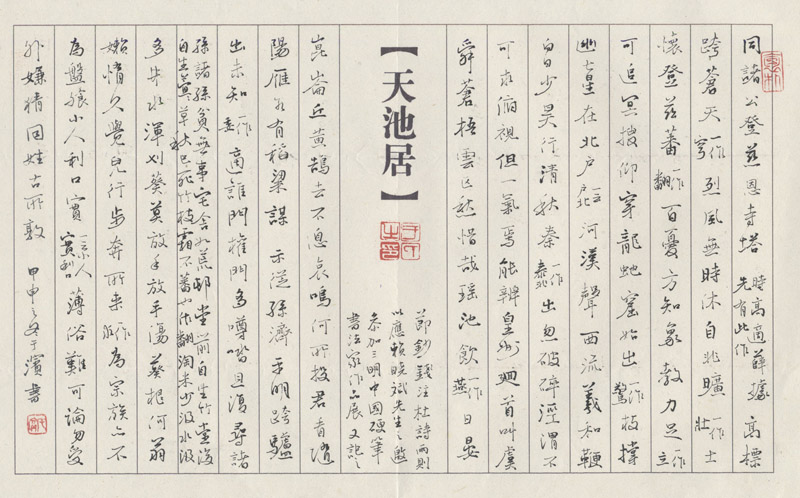 同諸公登慈恩寺塔 時高適薛璩先有此作 高標
跨蒼天一作穹烈風無時休自非曠一作壯士
懷登茲蕃一作翻百憂方知象教力足一作立
可追冥搜仰穿龍蛇窟始出一作驚枝撐
幽七星在北戶一云戶北河漢聲西流羲和鞭
白日少昊行清秋秦一作泰山忽破碎涇渭不
可求俯視但一氣焉能辨皇州迴首叫虞
舜蒼梧雲正愁惜哉瑤池飲一作燕日晏
【天池居】
節鈔錢注杜詩兩則
以應賴曉斌先生之邀
參加三明中國硬筆
書法家作品展又記之
崑崙丘黃鵠去不息哀鳴何所投君看隨
陽雁各有稻粱謀 示從孫濟 平明跨驢
出未知一作委適誰門權門多噂喒且復尋諸
孫諸孫貧無事宅舍如荒邨堂前自生竹堂後
自生萱草秋已死竹枝霜不蕃一作翻淘米少汲水汲
多井水渾刈葵莫放手放手傷葵根阿翁
嬾惰久覺兒行步奔所來一作求為宗族亦不
為盤飱小人利口實一云小人實利口薄俗難可論勿受
外嫌猜同姓古所敦 甲申之冬于濱書